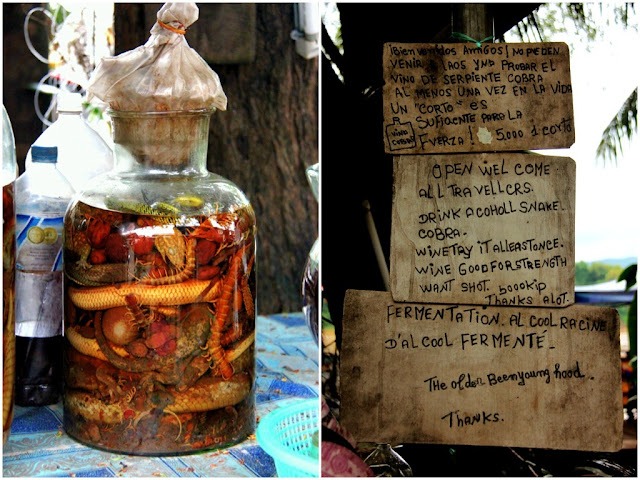 ¡Bienvenidos Amigos! NO PUEDEN
VENIR A LAOS Y NO PROBAR EL
VINO DE SERPIENTE COBRA
AL MENOS UNA VEZ EN LA VIDA
UN "CORTO" ES
SUFICIENTE PARA LA
FUERZA! 5.000 1 CORTO
VINO
COBRA
OPEN WEL COME
ALL TRAVELLERS.
DRINK ACOHOLL SNAKE.
COBRA.
WINE TRY IT ALLEASTONCE.
WINE GOOD FOR STRENGTH
WANT SHOT. 5000 KIP
THANKS ALOT.
FERMENTATION. AL COOL RACINE
D'AL COOL FERMENTÉ.
THE older Been young hood.
THANKS.